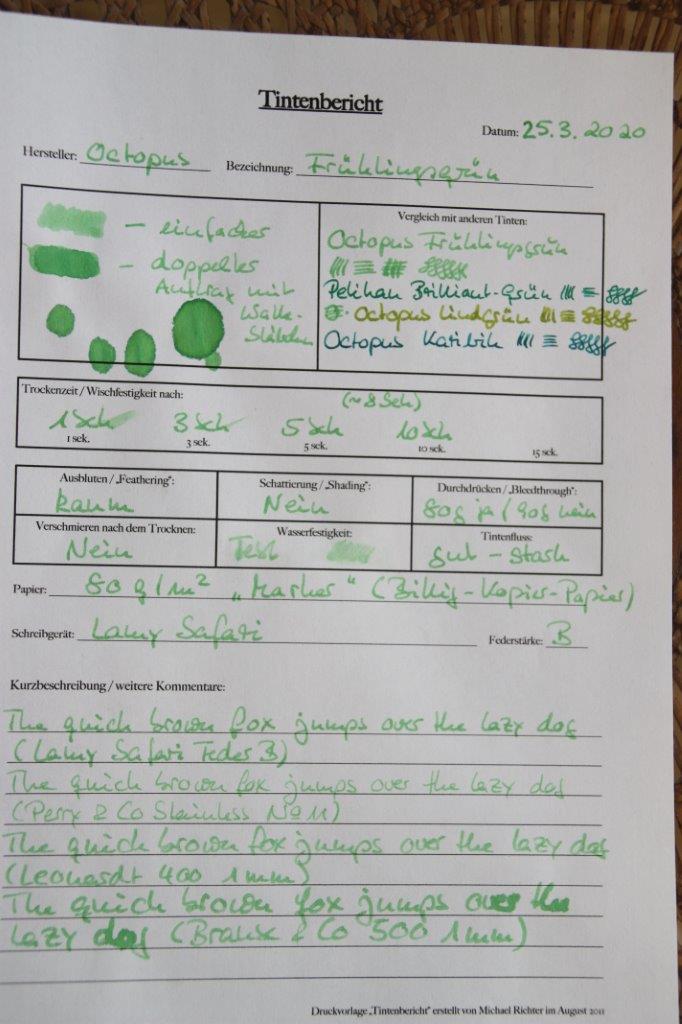 Tintenbericht
Datum: 25.3.2020
Hersteller: Octopus Bezeichnung: Frühlingsgrün
– einfacher
– doppelter
Auftrag mit
Watte-
Stäbchen
Vergleich mit anderen Tinten:
Octopus Frühlingsgrün
Pelikan Brilliant-Grün
Octopus Lindgrün
Octopus Karibik
Trockenzeit / Wischfestigkeit nach:
(~8 Sek)
1 Sek 3 Sek 5 Sek 10 Sek
1 sek. 3 sek. 5 sek. 10 sek. 15 sek.
Ausbluten / „Feathering": Schattierung / „Shading": Durchdrücken / „Bleedthrough":
kaum Nein 80g ja / 90g nein
Verschmieren nach dem Trocknen: Wasserfestigkeit: Tintenfluss:
Nein Test gut – stark
Papier: 80 g/m² „Marker" (Billig-Kopier-Papier)
Schreibgerät: Lamy Safari Federstärke: B
Kurzbeschreibung / weitere Kommentare:
The quick brown fox jumps over the lazy dog
(Lamy Safari Feder B)
The quick brown fox jumps over the lazy dog
(Perry & Co Stainless No 11)
The quick brown fox jumps over the lazy dog
(Leonardt 400 1mm)
The quick brown fox jumps over the
lazy dog (Brause & Co 500 1mm)
Druckvorlage „Tintenbericht" erstellt von Michael Richter im August 2011